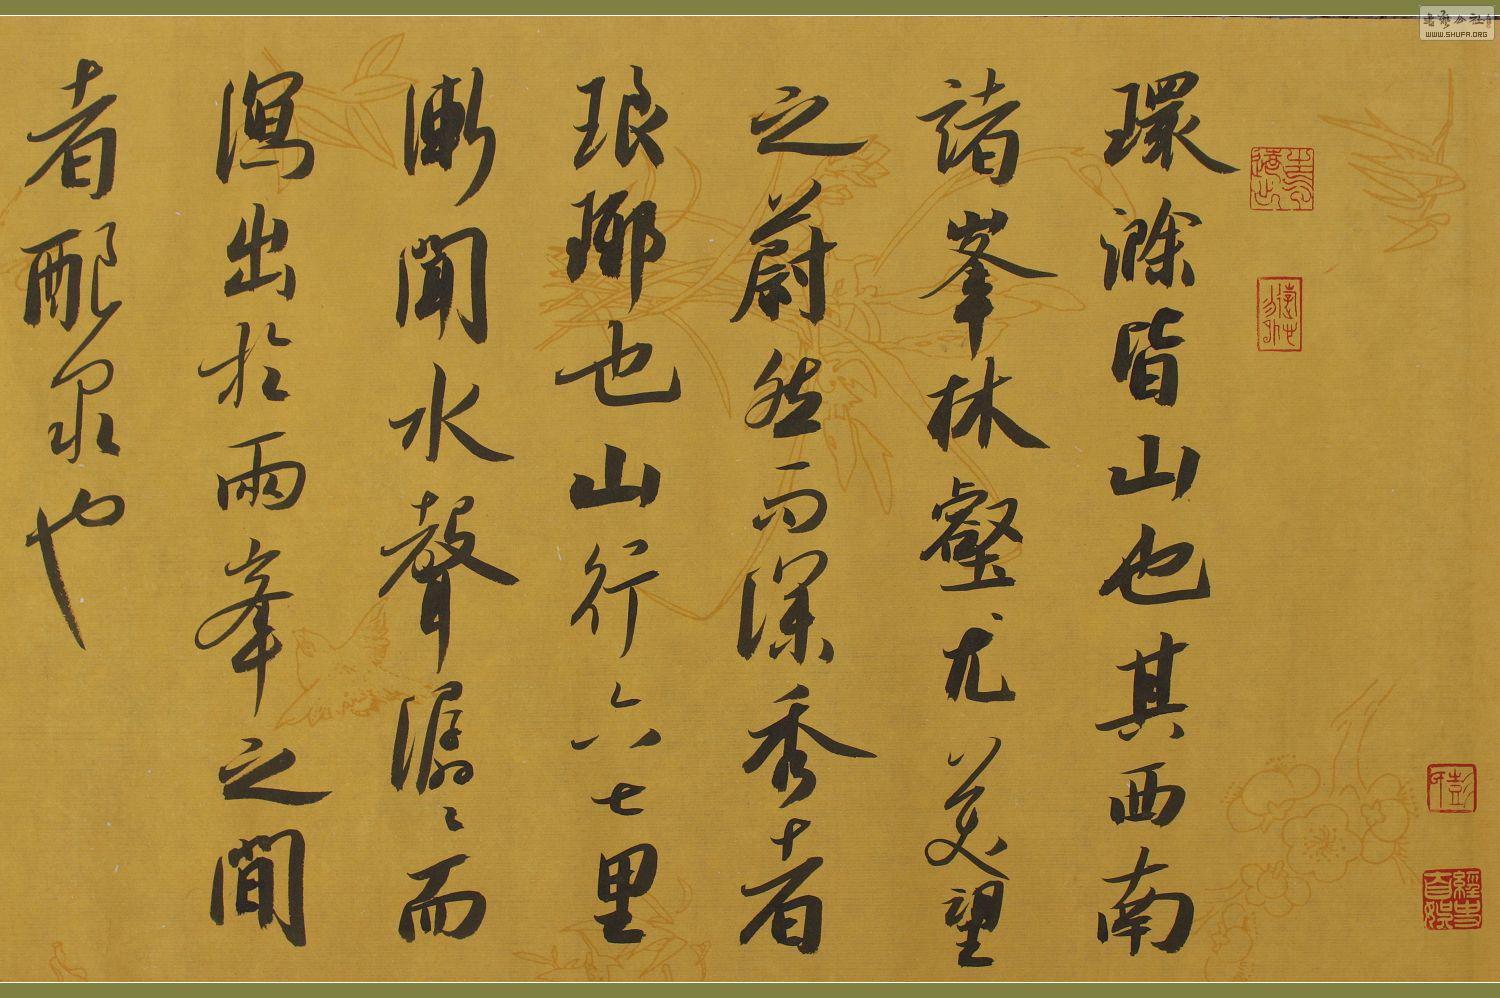 環滁皆山也其西南
諸峯林壑尤美望
之蔚然而深秀者
琅琊也山行六七里
漸聞水聲潺〻而
瀉出於兩峯之間
者釀泉也
WWW.SHUFA.ORG